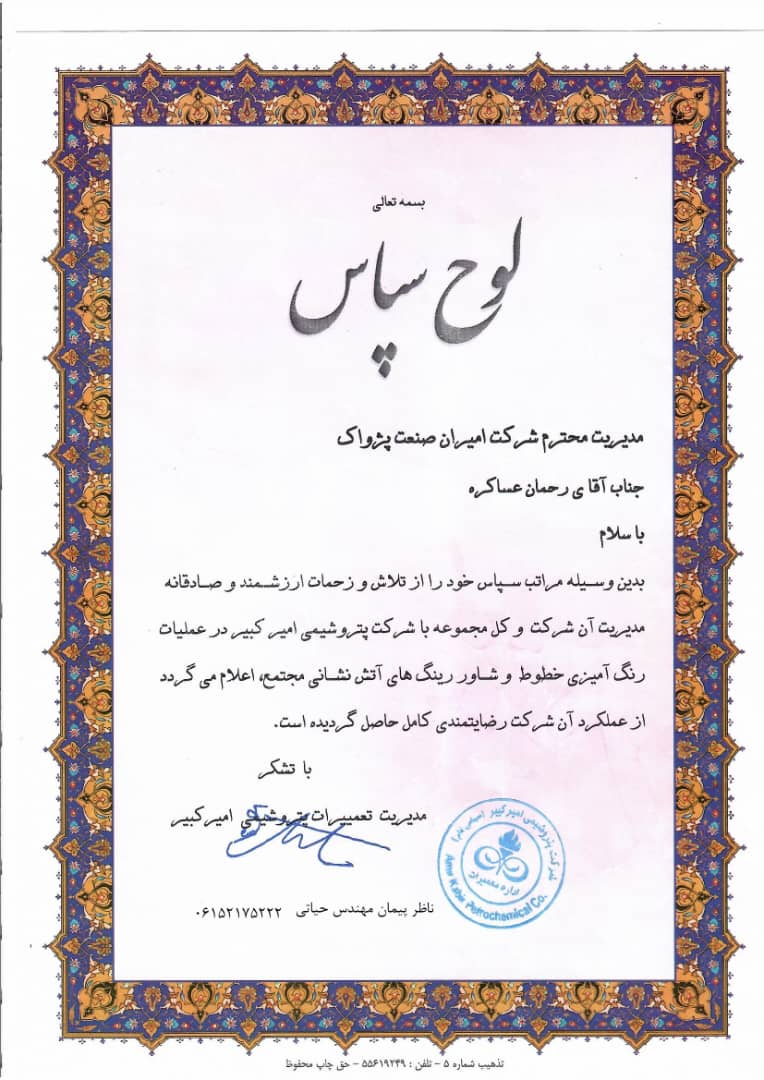 بسمه تعالی
لوح سپاس
مدیریت محترم شرکت امیران صنعت پژواک
جناب آقا ی رحمان عساکره
با سلام
بدین وسیله مراتب سپاس خود را از تلاش و زحمات ارزشمند و صادقانه
مدیریت آن شرکت و کل مجموعه با شرکت پتروشیمی امیر کبیر در عملیات
رنگ آمیزی خطوط و شاور رینگ های آتش نشانی مجتمع، اعلام می گردد
از عملکرد آن شرکت رضایتمندی کامل حاصل گردیده است.
با تشکر
مدیریت تعمییرات پتروشیمی امیرکبیر
شرکت پتروشیمی امیرکبیر (سهامی عام)
اداره تعمیرات
Amir Kabir Petrochemical Co.
ناظر پیمان مهندس حیاتی ۰۶۱۵۲۱۷۵۲۲۲
تذهیب شماره ۵ - تلفن : ۵۵۶۱۹۲۴۹ - حق چاپ محفوظ